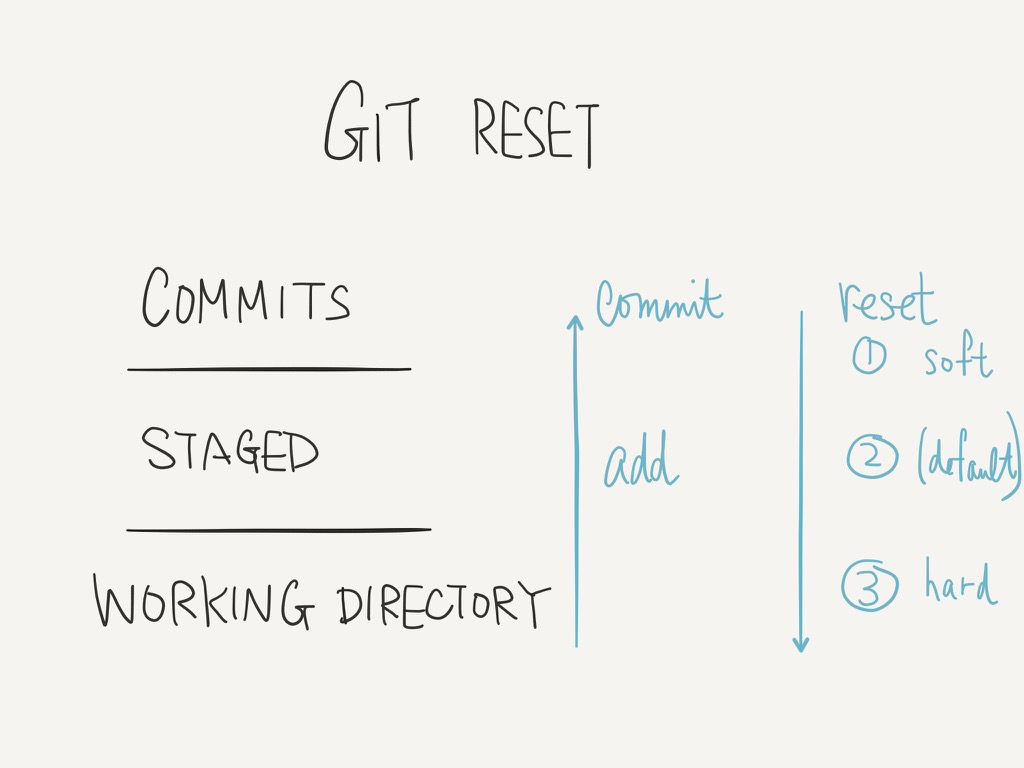 GIT RESET
COMMITS
STAGED
WORKING DIRECTORY
commit
add
reset
① soft
② (default)
③ hard